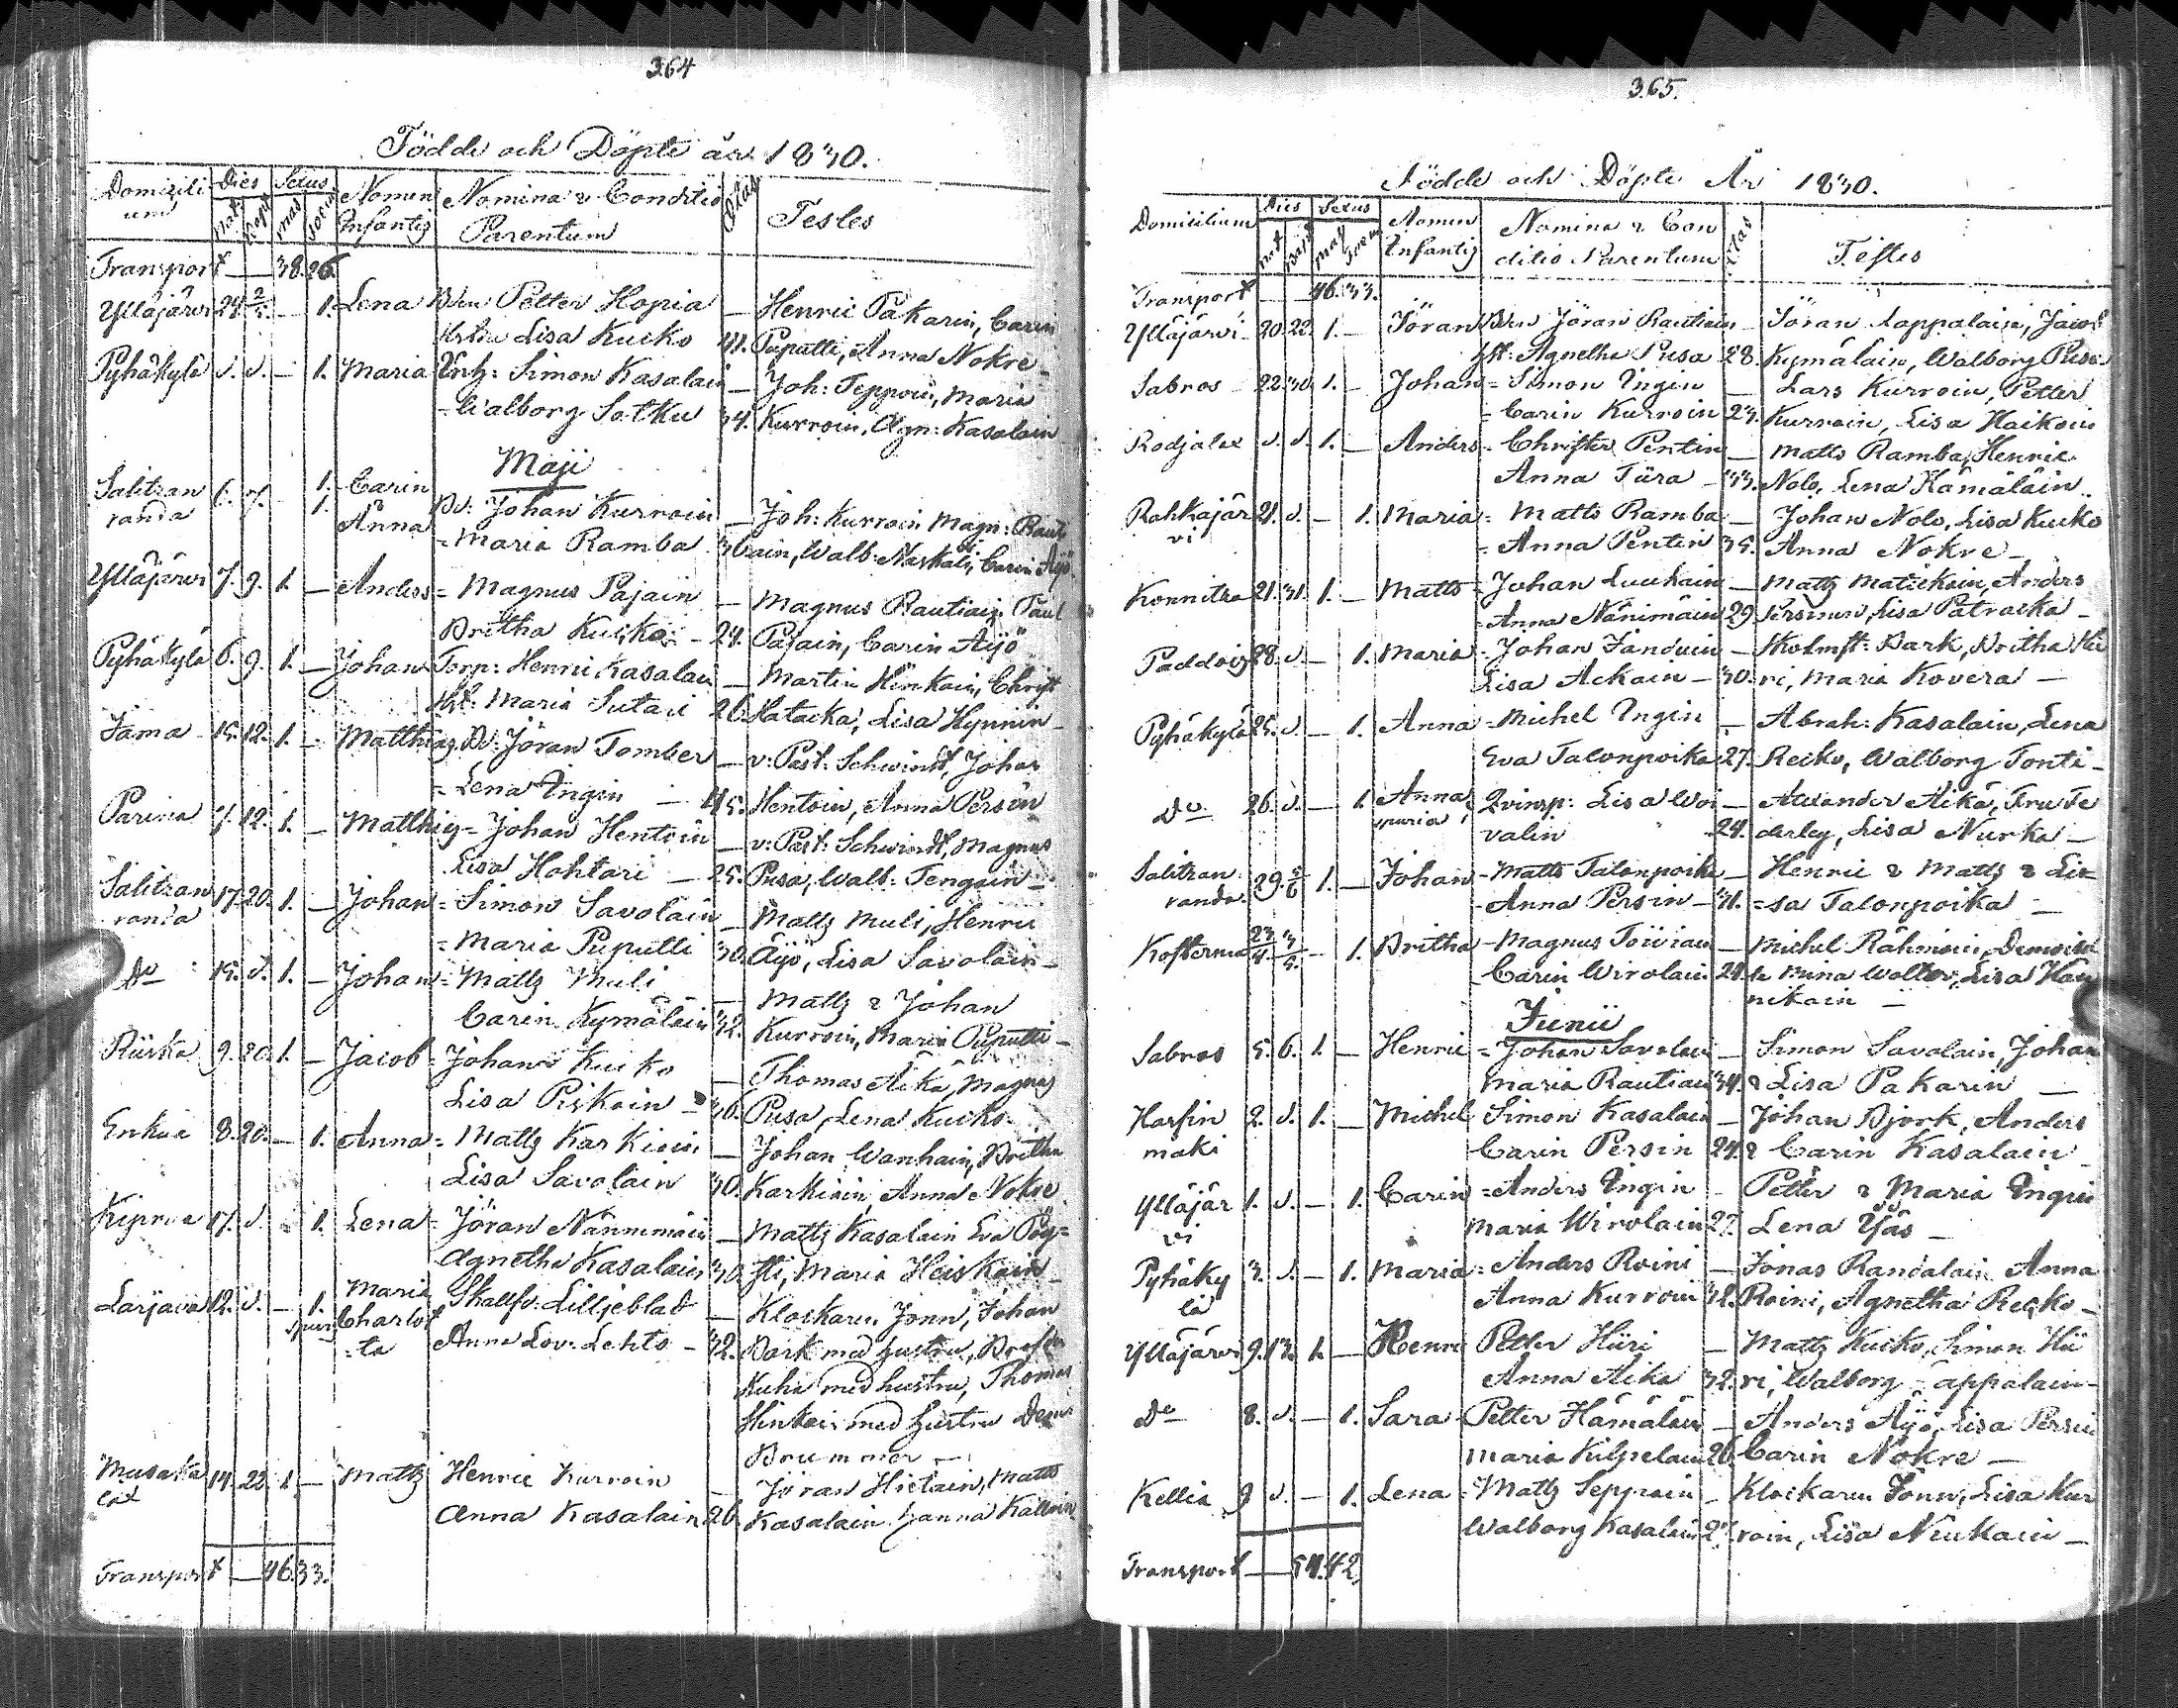 364
Födde och Döpte år 1830.
Domicilium Dies Sexus Nomen Infantis Nomina & Conditio Parentum Ætas Testes
nat. bapt. mas foem
Transport — 38. 26.
Ylläjärvi 24. 2/5. — 1. Lena Bdn Petter Hopia — Henric Pakarin, Carin
Hstru Lisa Kucko 41. Puputti, Anna Nokre
Pyhäkylä d. d. — 1. Maria Enk: Simon Kasalain — Joh: Teppoin, Maria
Walborg Sotku 34. Kurroin, Agn: Kasalain
Maji
Salitzan 6. 7. 1. Carin Bd: Johan Kurroin — Joh: Kurroin Magn: Raut
randa 1. Anna = Maria Ramba 30. iain, Walb: Naskali, Carin Äyö
Ylläjärvi 7. 9. 1. — Anders = Magnus Pajain — Magnus Rautiain, Paul
Britha Kucko - 24. Pajain, Carin Äyö
Pyhäkylä 6. 9. 1. — Johan Torp: Henric Kasalain — Martin Hinkain, Christ
Hst: Maria Sutari 26. Hatacka, Lisa Hynnin
Jama 15. 12. 1. — Matthias Bd: Jöran Tomber — v: Past: Schwindt, Johan
= Lena Ingin — 45. Hentoin, Anna Persin
Parina 7. 12. 1. — Matthias = Johan Hentoin — v: Past: Schwindt, Magnus
Lisa Hohtari — 25. Pusa, Walb: Tengain
Salitzan 17. 20. 1. — Johan = Simon Savolain — Matts Muli, Henric
randa = Maria Puputti 30. Äyö, Lisa Savolain
Do 15. d. 1. — Johan = Matts Muli — Matts & Johan
Carin Kymäläin 32. Kurroin, Maria Puputti
Riiska 9. 20. 1. — Jacob = Johan Kucko — Thomas Äikä, Magnus
Lisa Piskoin 36. Pusa, Lena Kucko
Enkua 8. 20. — 1. Anna = Matts Karkiain — Johan Wanhain, Britha
Lisa Savolain 30. Karkiain, Anna Nokre
Kipina 17. d. 1. Lena = Jöran Nännimäin — Matts Kasalain Eva Pöy=
Agnetha Kasalain 30. sti, Maria Heiskain
Larjava 12. d. — 1. Maria Skallfv: Lilljeblad — Klockaren Jonn, Johan
spur: Charlot=ta Anna Lov: Lehto — 32. Bark med hustru,
Kuha med hustru, Thomas
Hinkain med hustru
Brummer —
Musaka 14. 22. 1. — Matts Henric Kurroin — Jöran Hietain, Matts
lax Anna Kasalain 26. Kasalain Hanna Kalloin
Transport — 46. 33.
365.
Födde och Döpte År 1830.
Domicilium Dies Sexus Nomen Infantis Nomina & Conditio Parentum Ætas Testes
nat bapt mas foem
Transport — 46. 33.
Ylläjärvi 20. 23. 1. — Jöran Bdn Jöran Rautiain — Jöran Lappalain, Jacob
Hst: Agnetha Pusa 28. Kymäläin, Walborg Pusa
Sabros 22. 30. 1. — Johan = Simon Ingin — Lars Kurroin, Petter
= Carin Kurroin 23. Kurroin, Lisa Haikoin
Rodjalax d. d. 1. — Anders = Christer Pentin — Matts Ramba, Henric
Anna Tiira — 33. Nolo, Lena Hämäläin
Rahkajär 21. d. — 1. Maria = Matts Ramba — Johan Nolo, Lisa Kucko
vi = Anna Pentin 35. Anna Nokre —
Konnitza 21. 31. 1. — Matts = Johan Luukain — Matts Matickain, Anders
Anna Nänimäin 29. Persinen, Lisa Patracka —
Paddois 28. d. — 1. Maria = Johan Janduin — Skolmst: Bark, Britha Hii
Lisa Ackain — 30. ri, Maria Kovera —
Pyhäkylä 25. d. — 1. Anna = Michel Ingin — Abrah: Kasalain, Lena
Eva Talonpoika 27. Reiko, Walborg Tonti —
Do 26. d. — 1. Anna Qvinsp: Lisa Woi — Alexander Äikä, Fru Fe
spuria valin 24. derley, Lisa Nurka —
Salitzan 29. 5/6 1. — Johan - Matts Talonpoika — Henric & Matts & Li=
randa. - Anna Persin — 31. =sa Talonpoika —
Kosterma 23/4. 3/5. — 1. Britha - Magnus Toiviain — Michel Rähmäin, Demoisel
Carin Wirolain 24. le Mina Walter, Lisa Hän
nikain —
Junii
Sabros 5. 6. 1. — Henric = Johan Savolain — Simon Savolain, Johan
Maria Rautiain 34. & Lisa Pakarin —
Harfin 2. d. 1. — Michel Simon Kasalain — Johan Björk, Anders
mäki Carin Persin 24. & Carin Kasalain
Ylläjär 1. d. — 1. Carin = Anders Ingin - Petter & Maria Ingin
vi Maria Wirolain 27. Lena Yjäs —
Pyhäky 3. d. — 1. Maria = Anders Roini — Jonas Randalain Anna
lä Anna Kurroin 32. Roini, Agnetha Recko —
Ylläjärvi 9. 13. 1. — Henric Petter Hiiri — Matts Kucko, Simon Hii
Anna Äikä 32. ri, Walborg Lappalain —
Do 8. d. — 1. Sara Petter Hämäläin — Anders Äyö, Lisa Persin
Maria Kilpelain 26. Carin Nokre —
Kellia 9 d. — 1. Lena = Matts Seppäin — Klockaren Jonn, Lisa Kur
Walborg Kasalain roin, Lisa Niukain —
Transport — 54. 42.